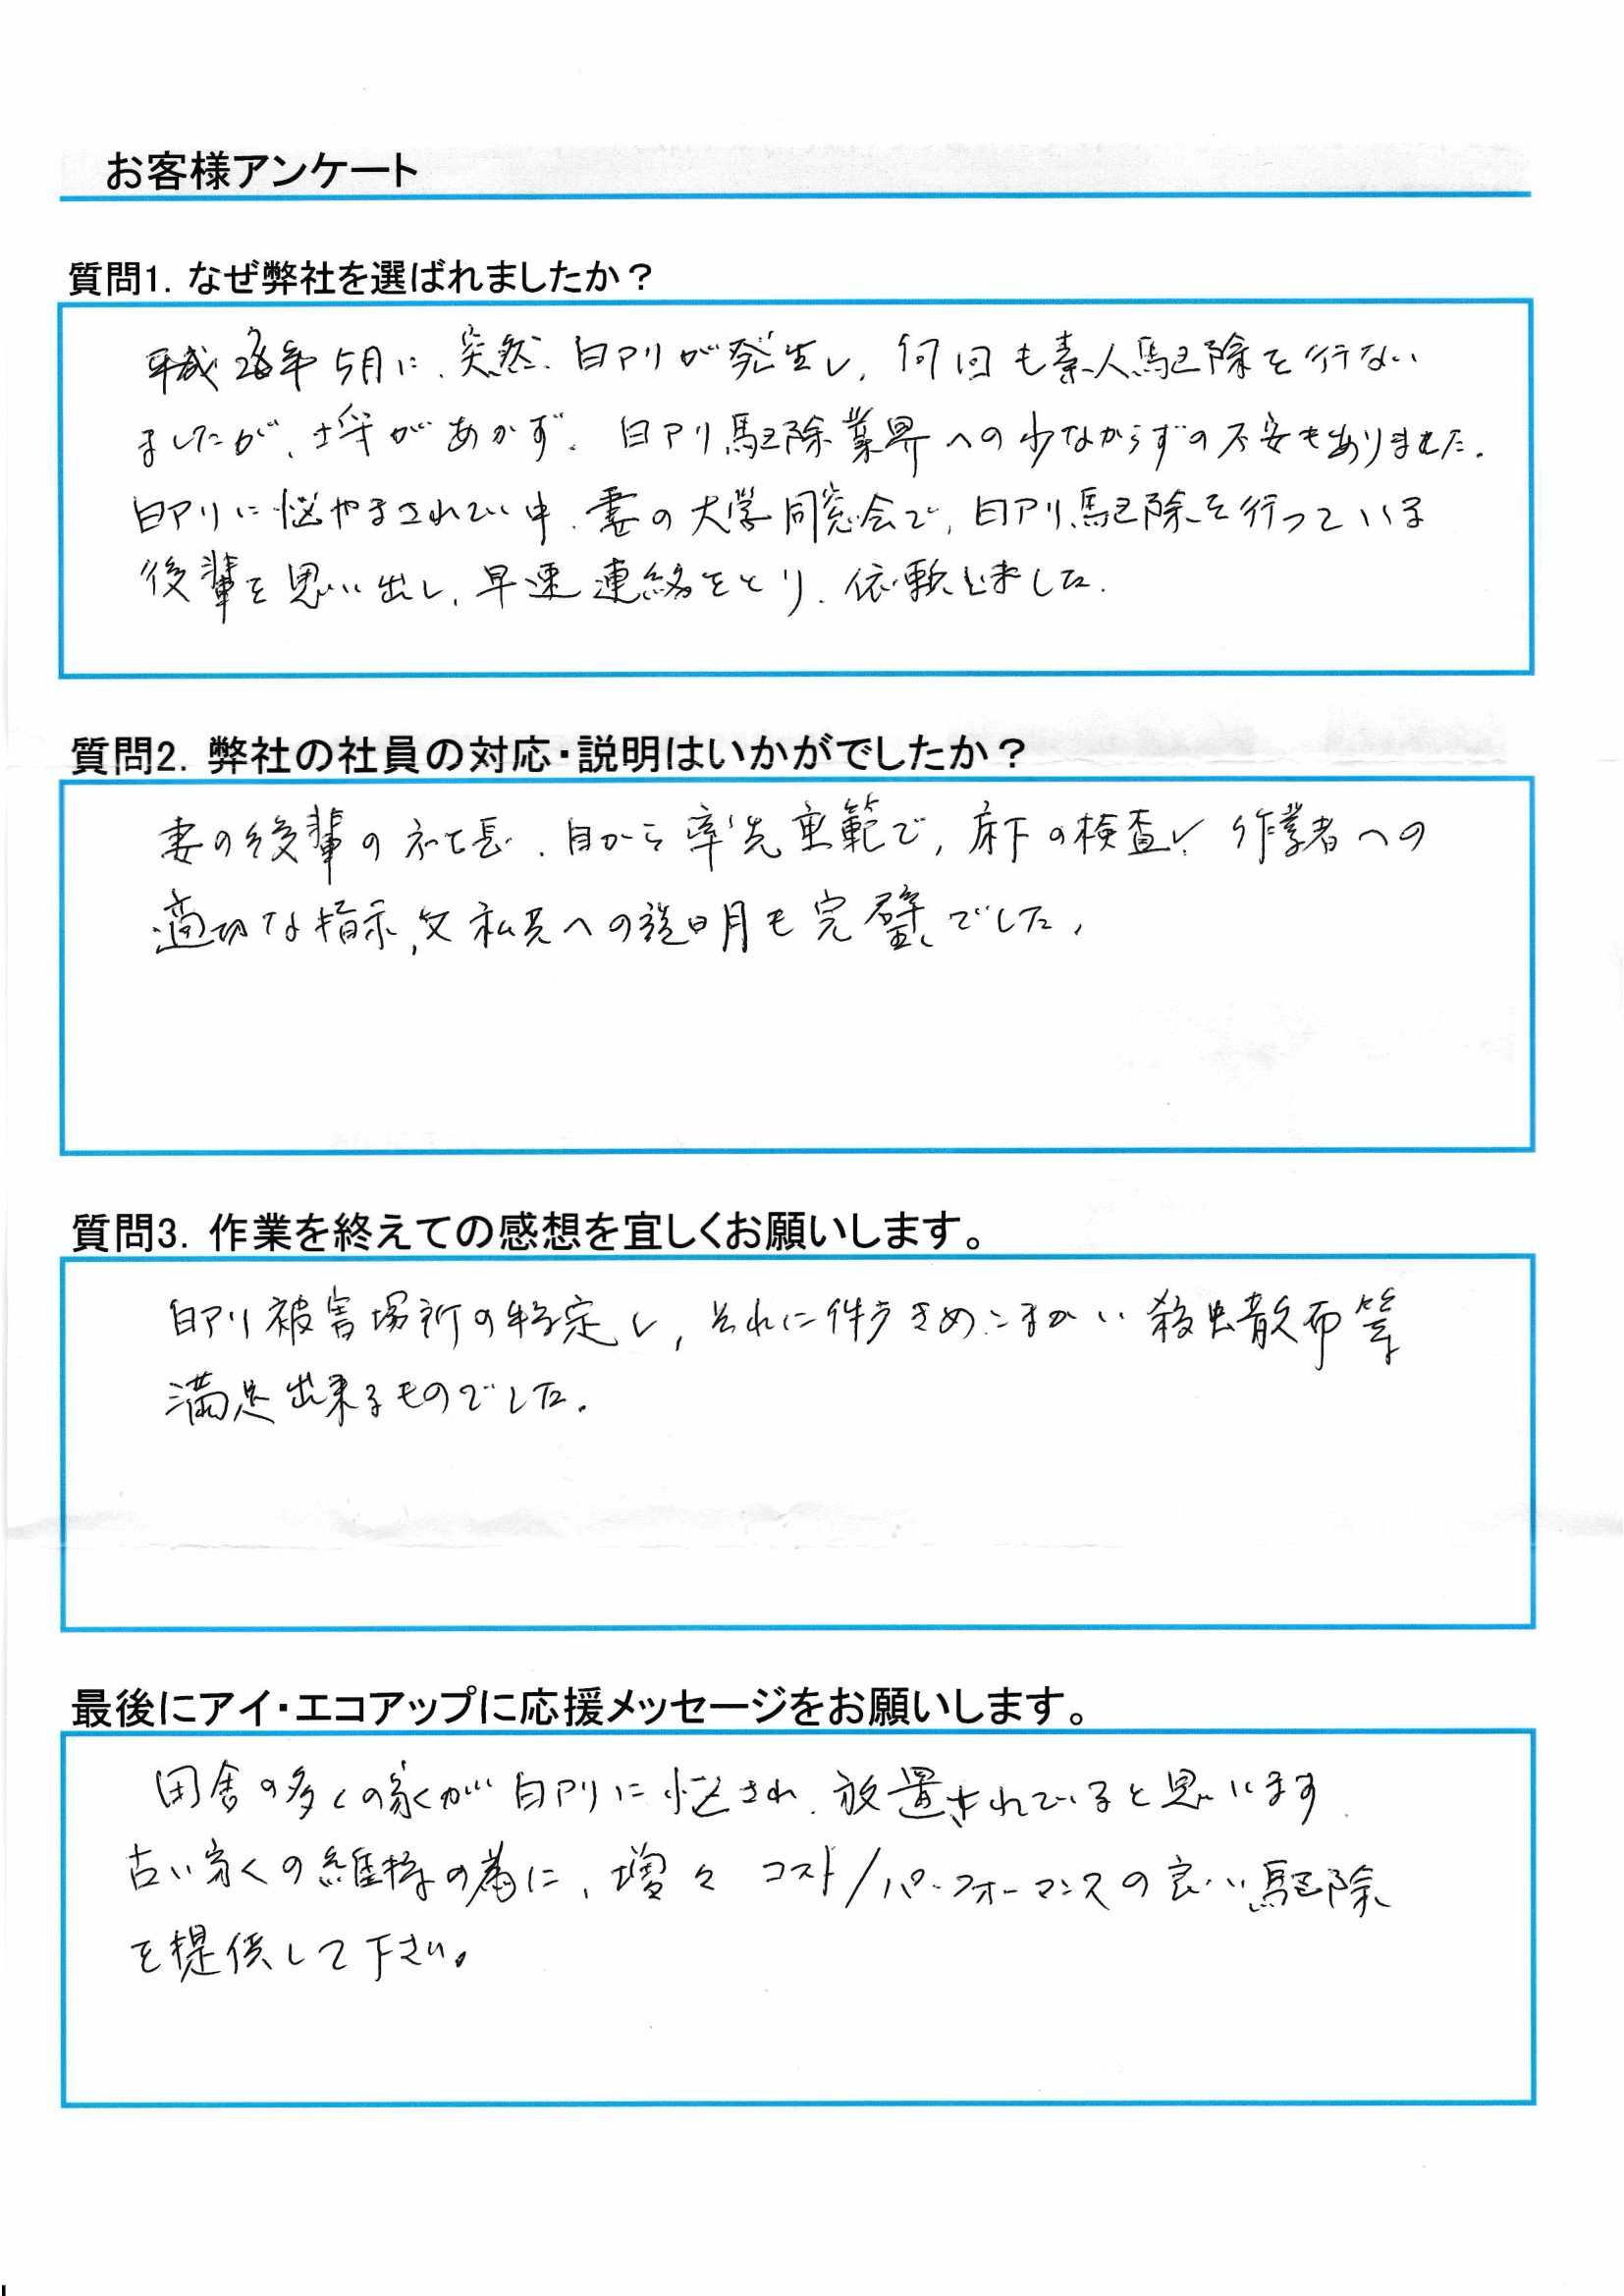 お客様アンケート
質問1. なぜ弊社を選ばれましたか？
平成 年5月に、突然、白アリが発生し、何回も素人駆除を行ない
ましたが、埒があかず、白アリ駆除業界への少なからずの不安もありました。
白アリに悩やまされてい中、妻の大学同窓会で、白アリ駆除を行っている
後輩を思い出し、早速連絡をとり、依頼しました。
質問2. 弊社の社員の対応・説明はいかがでしたか？
妻の後輩の社長、自から率先垂範で、床下の検査、作業者への
適切な指示、又私共への説明も完璧でした。
質問3. 作業を終えての感想を宜しくお願いします。
白アリ被害場所の特定し、それに伴うきめこまかい殺虫散布等
満足出来るものでした。
最後にアイ・エコアップに応援メッセージをお願いします。
田舎の多くの家々が白アリに悩され、放置されていると思います
古い家々の維持の為に、増々 コスト/パーフォーマンスの良い駆除
を提供して下さい。